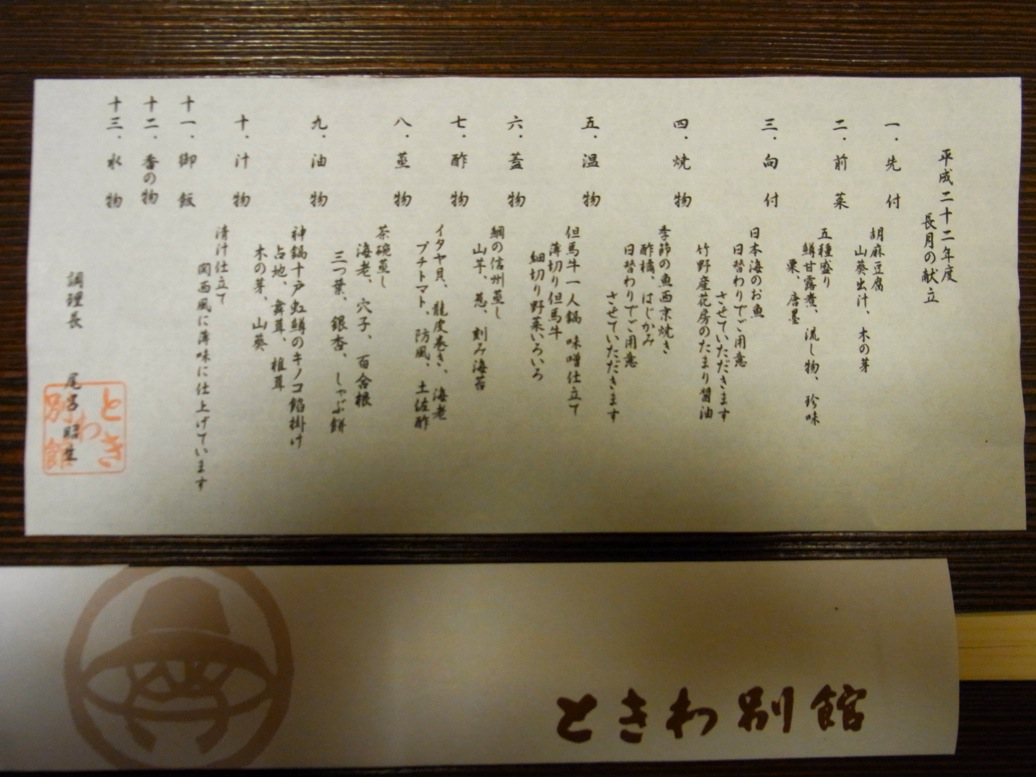 平成二十二年度
長月の献立
一．先付
胡麻豆腐
山葵出汁、木の芽
二．前菜
五種盛り
鱚甘露煮、流し物、珍味
栗、唐墨
三．向付
日本海のお魚
日替わりでご用意
させていただきます
竹野産花房のたまり醤油
四．焼物
季節の魚西京焼き
酢橘、はじかみ
日替わりでご用意
させていただきます
五．温物
但馬牛一人鍋 味噌仕立て
薄切り但馬牛
細切り野菜いろいろ
六．蓋物
鯛の信州蒸し
山芋、葱、刻み海苔
七．酢物
イタヤ貝、龍皮巻き、海老
プチトマト、防風、土佐酢
八．蒸物
茶碗蒸し
海老、穴子、百合根
三つ葉、銀杏、しゃぶ餅
九．油物
神鍋十戸虹鱒のキノコ餡掛け
占地、舞茸、椎茸
木の芽、山葵
十．汁物
清汁仕立て
関西風に薄味に仕上げています
十一．御飯
十二．香の物
十三．水物
調理長 尾宮 昭
ときわ別館
ときわ別館